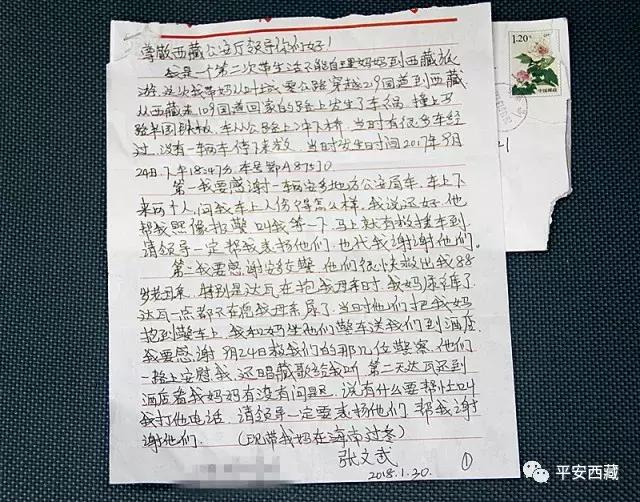 尊敬西藏公安厅领导你们好！
我是一个第二次带生活不能自理妈妈到西藏旅
游，这次我带妈从叶城 公路穿越219国道到西藏
从西藏走109国道回家的路上发生了车祸，撞上马
路 铁板，车从公路上冲下桥，当时有很多车经
过，没有一辆车停下来救，当时发生时间2017年9月
24日下午18:47分，车号鄂A87510
第一我要感谢一辆安多地方公安局车，车上下
来两个人，问我车上人伤得怎么样，我说还好，他
帮我照像报警，叫我等一下，马上就有救援车到，
请领导一定帮我表扬他们，也代我谢谢他们。
第二我要感谢安多交警，他们很快救出我88
岁老母亲，特别是达瓦在抱我母亲时，我妈尿裤了
达瓦一点都不在意我母亲尿了，当时他们把我妈
抱到警车上，我和妈坐他们警车送我们到酒店，
我要感谢9月24日救我们的那几位警察，他们
一路上安慰我，还唱藏歌给我听，第二天达瓦还到
酒店看我妈妈有没有问题，说有什么要帮忙叫
我打他电话，请领导一定要表扬他们，帮我谢
谢他们。（现带我妈在海南过冬）
张文武
2018.1.30.
①
1.20元
中国邮政
平安西藏